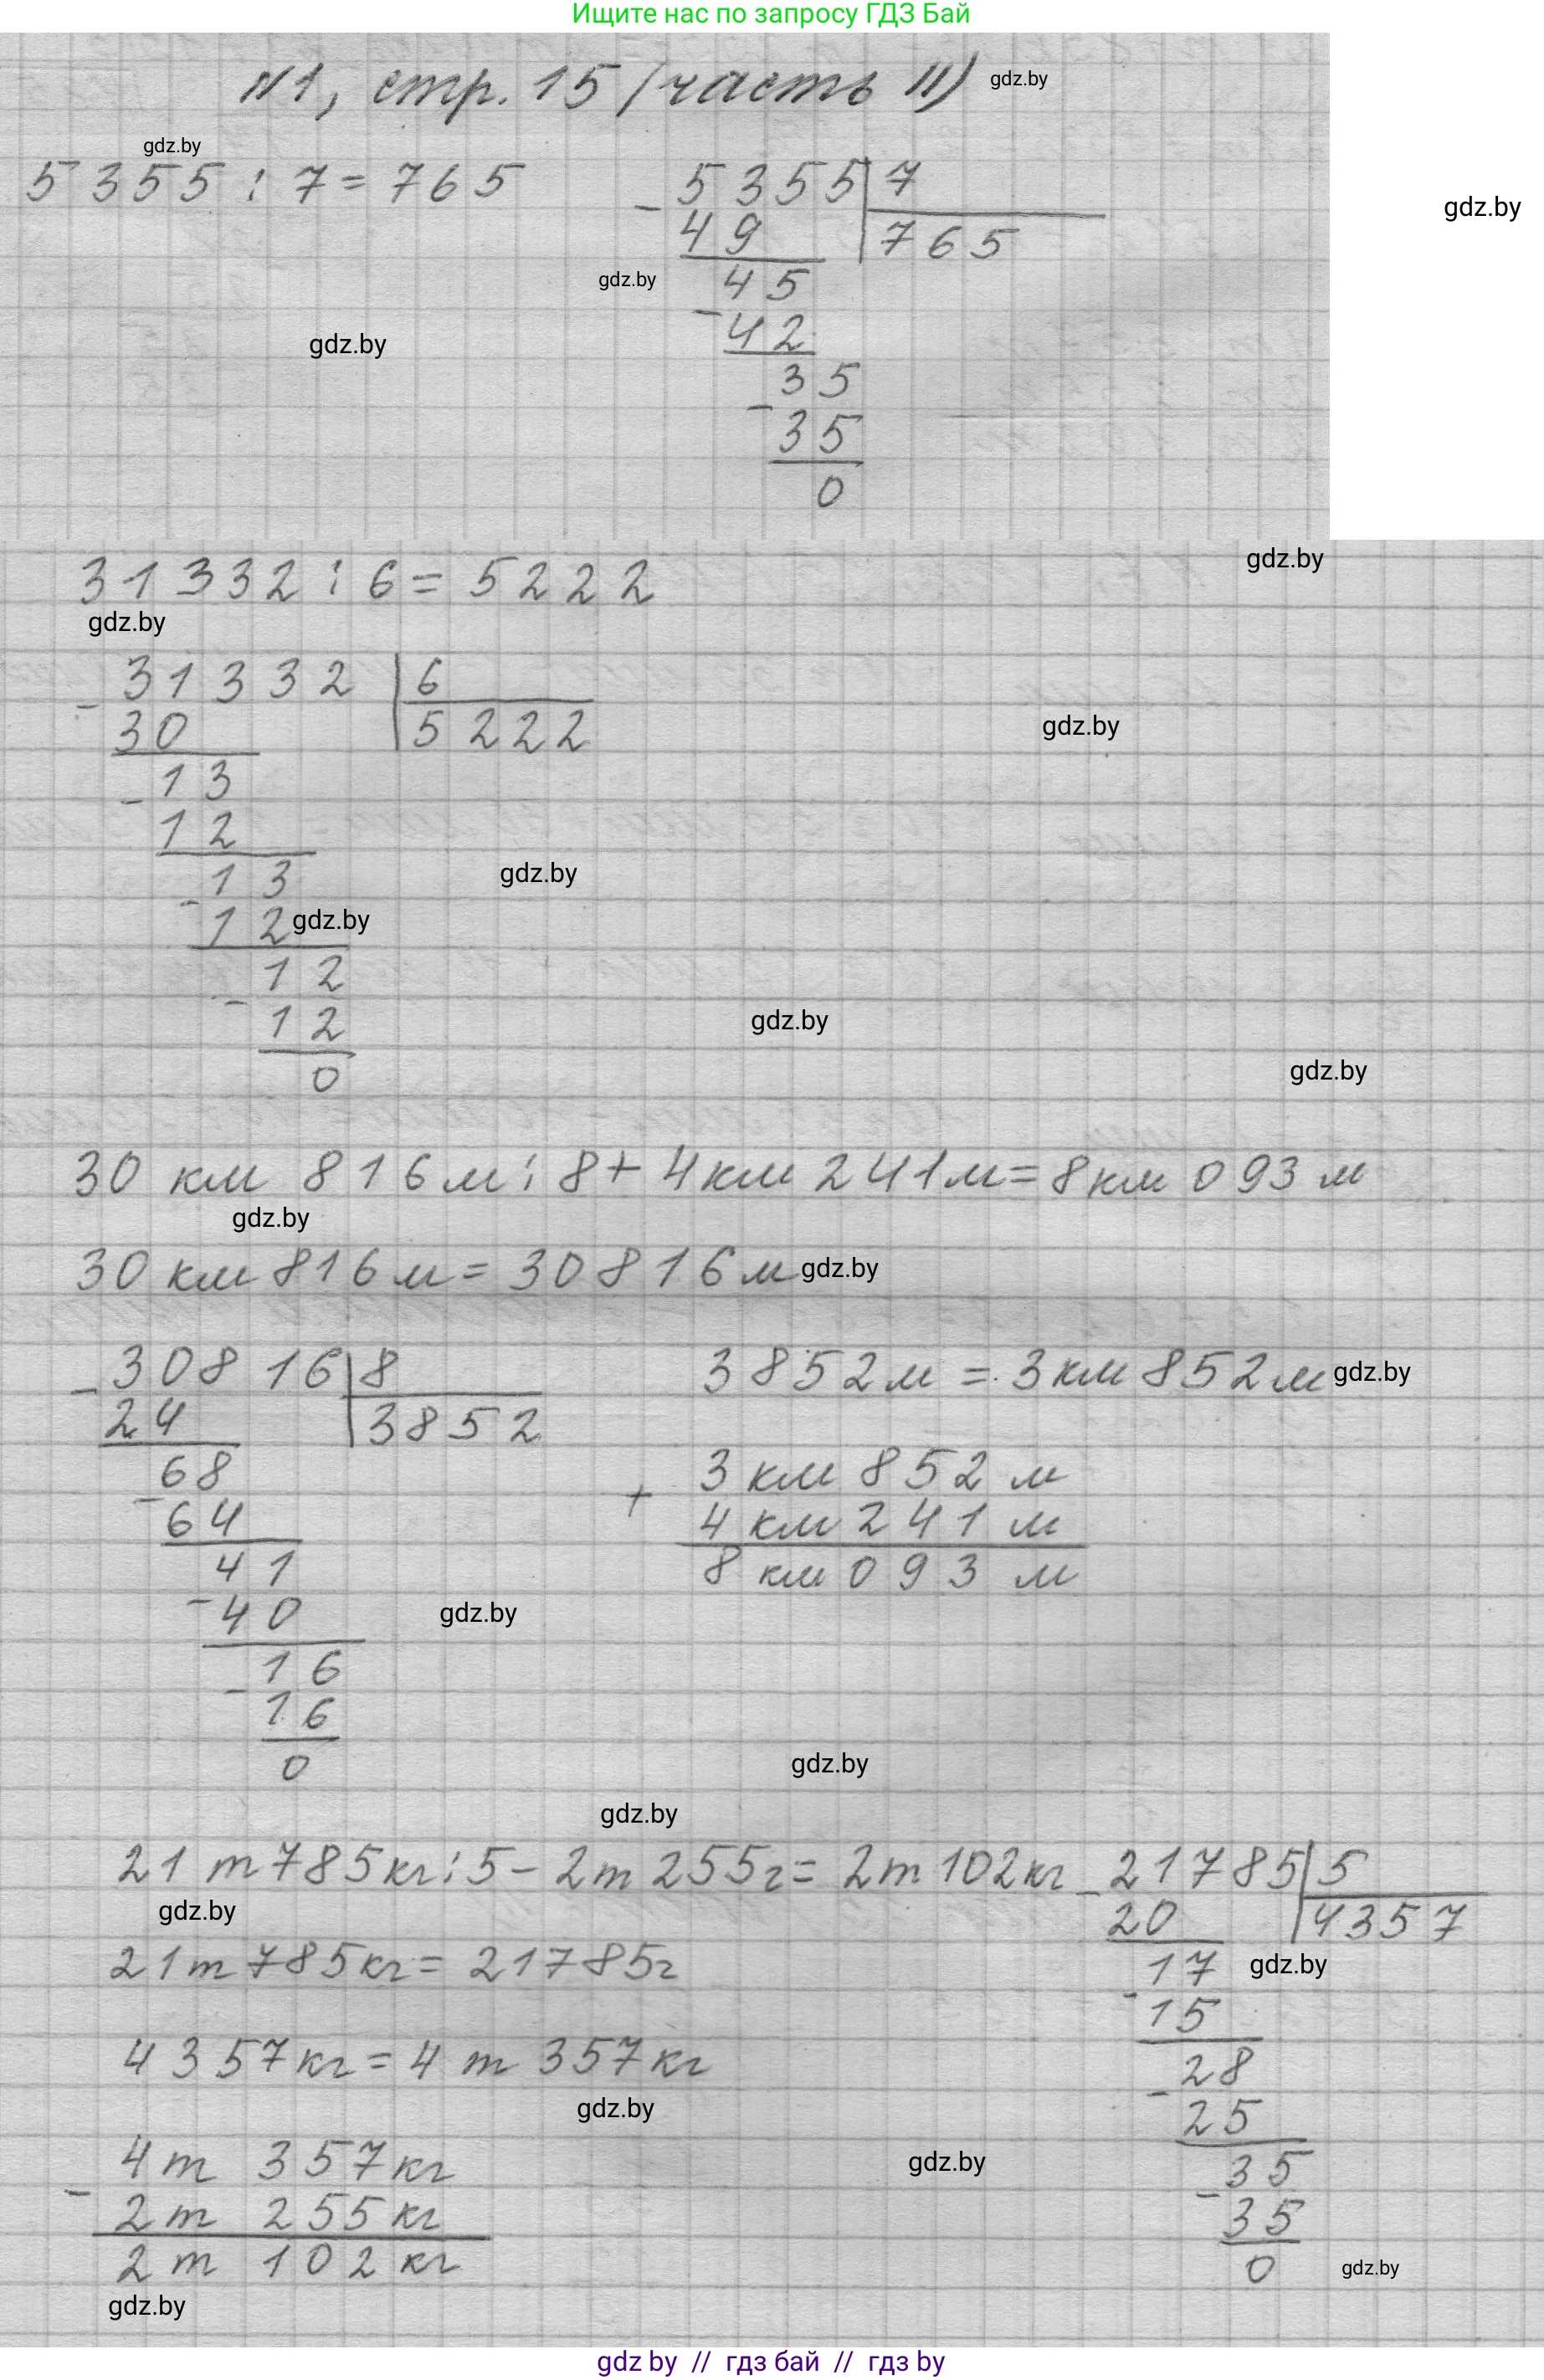 Ищите нас по запросу ГДЗ Бай
№1, стр. 15 (часть II) gdz.by
gdz.by
5355 : 7 = 765
5355 7
gdz.by
- 49 765
gdz.by 45
- 42
gdz.by
35
- 35
0
gdz.by
31332 : 6 = 5222
gdz.by
31332 6
- 30 5222
gdz.by
13
- 12
13 gdz.by
- 12 gdz.by
12
- 12
gdz.by
0
gdz.by
30 км 816 м : 8 + 4 км 241 м = 8 км 093 м
gdz.by
30 км 816 м = 30816 м gdz.by
30816 8
- 24 3852
68
- 64
41
- 40
16
- 16
0
3852 м = 3 км 852 м gdz.by
3 км 852 м
+ 4 км 241 м
8 км 093 м
gdz.by
gdz.by
gdz.by
21 т 785 кг : 5 - 2 т 255 г = 2 т 102 кг
gdz.by
21 т 785 кг = 21785 г
4357 кг = 4 т 357 кг
gdz.by
4 т 357 кг
- 2 т 255 кг
2 т 102 кг
gdz.by
21785 5
- 20 4357
17 gdz.by
- 15
28
- 25
gdz.by
35
- 35
0 gdz.by
gdz by // гдз бай // гдз by